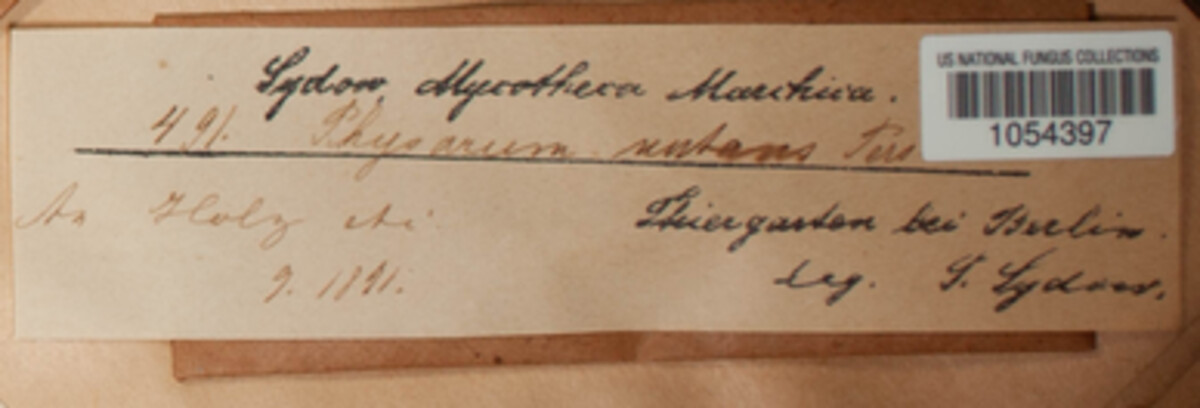 Sydow, Mycotheca Marchica.
US NATIONAL FUNGUS COLLECTIONS
1054397
491. Physarum nutans Pers
An Holz
Thiergarten bei Berlin.
9. 1891.
leg. P. Sydow.